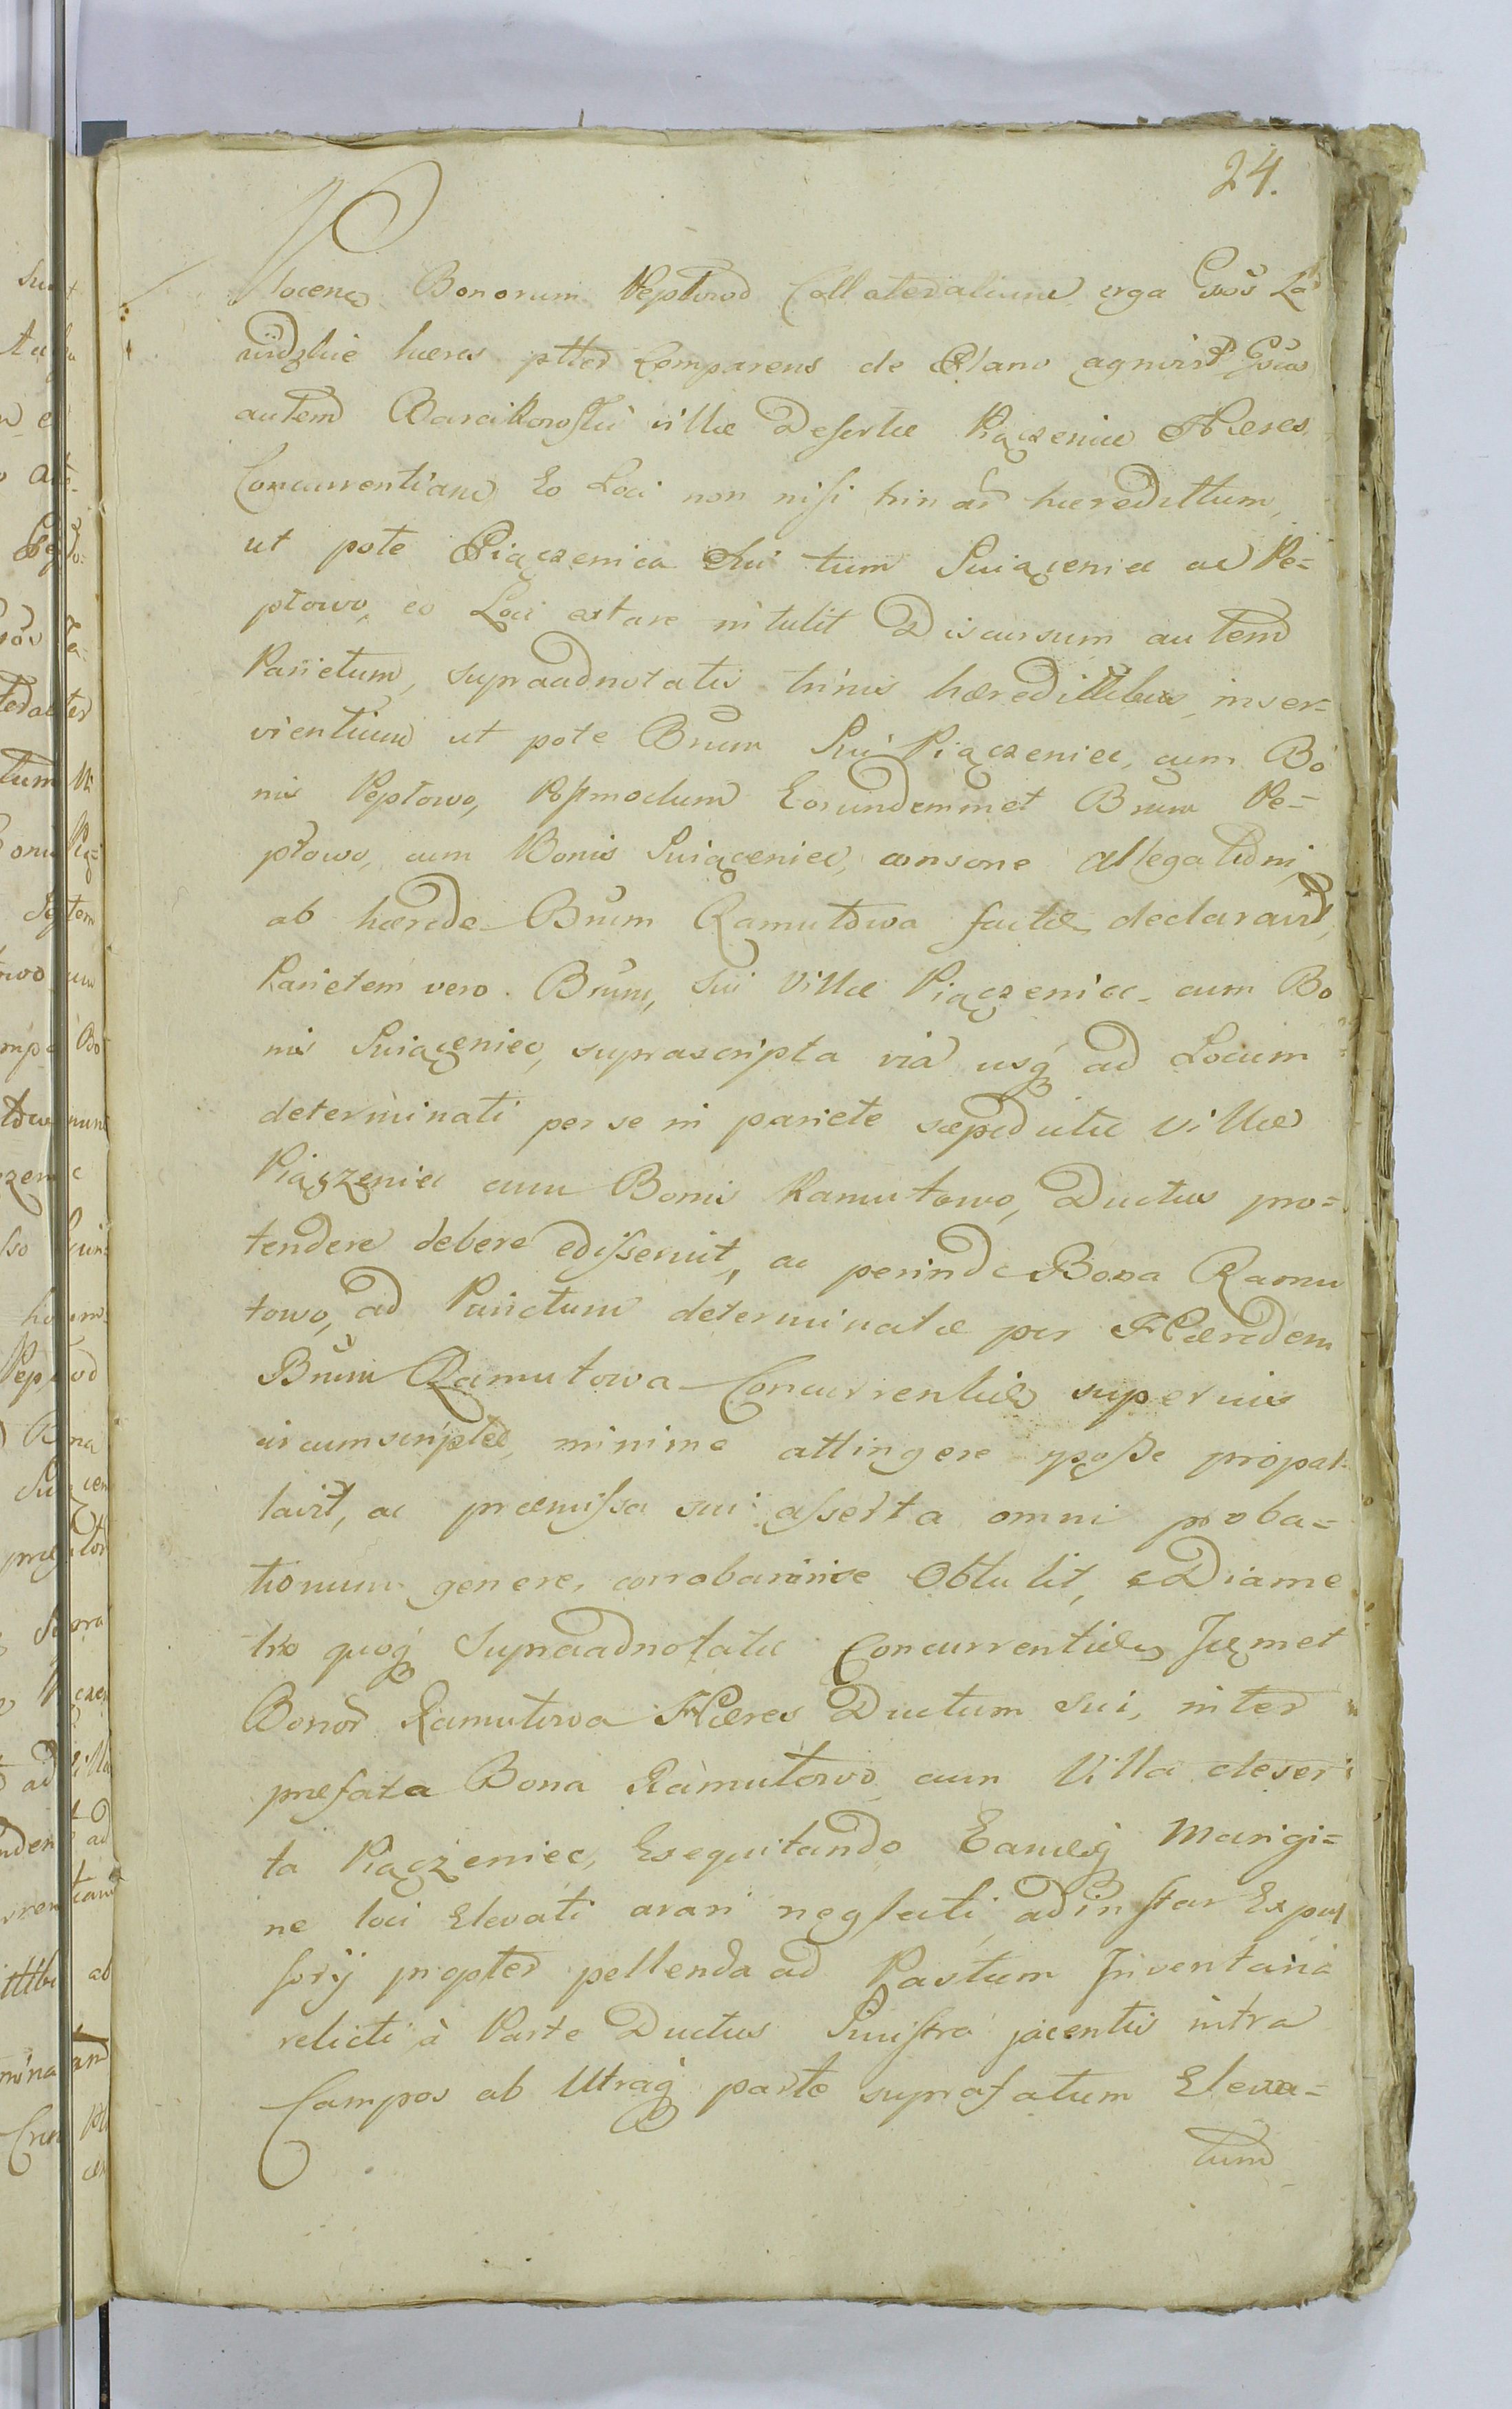 24.
Bonorum Peptowo Collateralium erga Gsos La
widzkie hæres ptter Comparens de Plano agnovit Gsus
autem Barcikowski villæ Desertæ Piączeniec Hæres
Concurrentiam Eo Loci non nisi trinar hæredittum,
ut pote Piączenica Sui tum Swiąceniec ac Pe=
ptowo, eo Loci extare intulit Discursum autem
Parietum, supraadnotatis trinis hæredittibus inser=
vientium ut pote Bnum Sui Piączeniec, cum Bo
nis Peptowo, Postmodum Eorundemmet Bnum Pe=
ptowo, cum Bonis Swiąceniec, consone Allegationi
ab hærede Bnum Ramutowa factæ declaravit,
Parietem vero Bnum, Sui Villæ Piączeniec cum Bo
nis Swiąceniec, suprascripta via usq ad Locum
determinati per se in pariete sæpedictæ Villæ
Piączeniec cum Bonis Ramutowo, Ductus pro=
tendere debere edisseruit, ac perinde Bona Ramu
towo, ad Parietum determinatæ per Hæredem
Bnum Ramutowa Concurrentiæ superius
circumscriptæ, minime attingere posse propal=
lavit, ac præmissa sui asserta omni proba=
tionum genere, Obtulit, e Diame
tro quoq Supraadnotatæ Concurrentiæ Jdemet
Bonor Ramutowa Hæres Ductum sui, inter
præfata Bona Ramutowo cum Villa deser
ta Piączeniec, Exequitando Eamq Margi=
ne loci Elevati arari neglecti, adinstar Expul
sorij propter pellenda ad Pastum Jnventaria
relicti à Parte Ductus Sinistra jacentis intra
Campos ab Utraq parte suprafatum Eleva=
tum